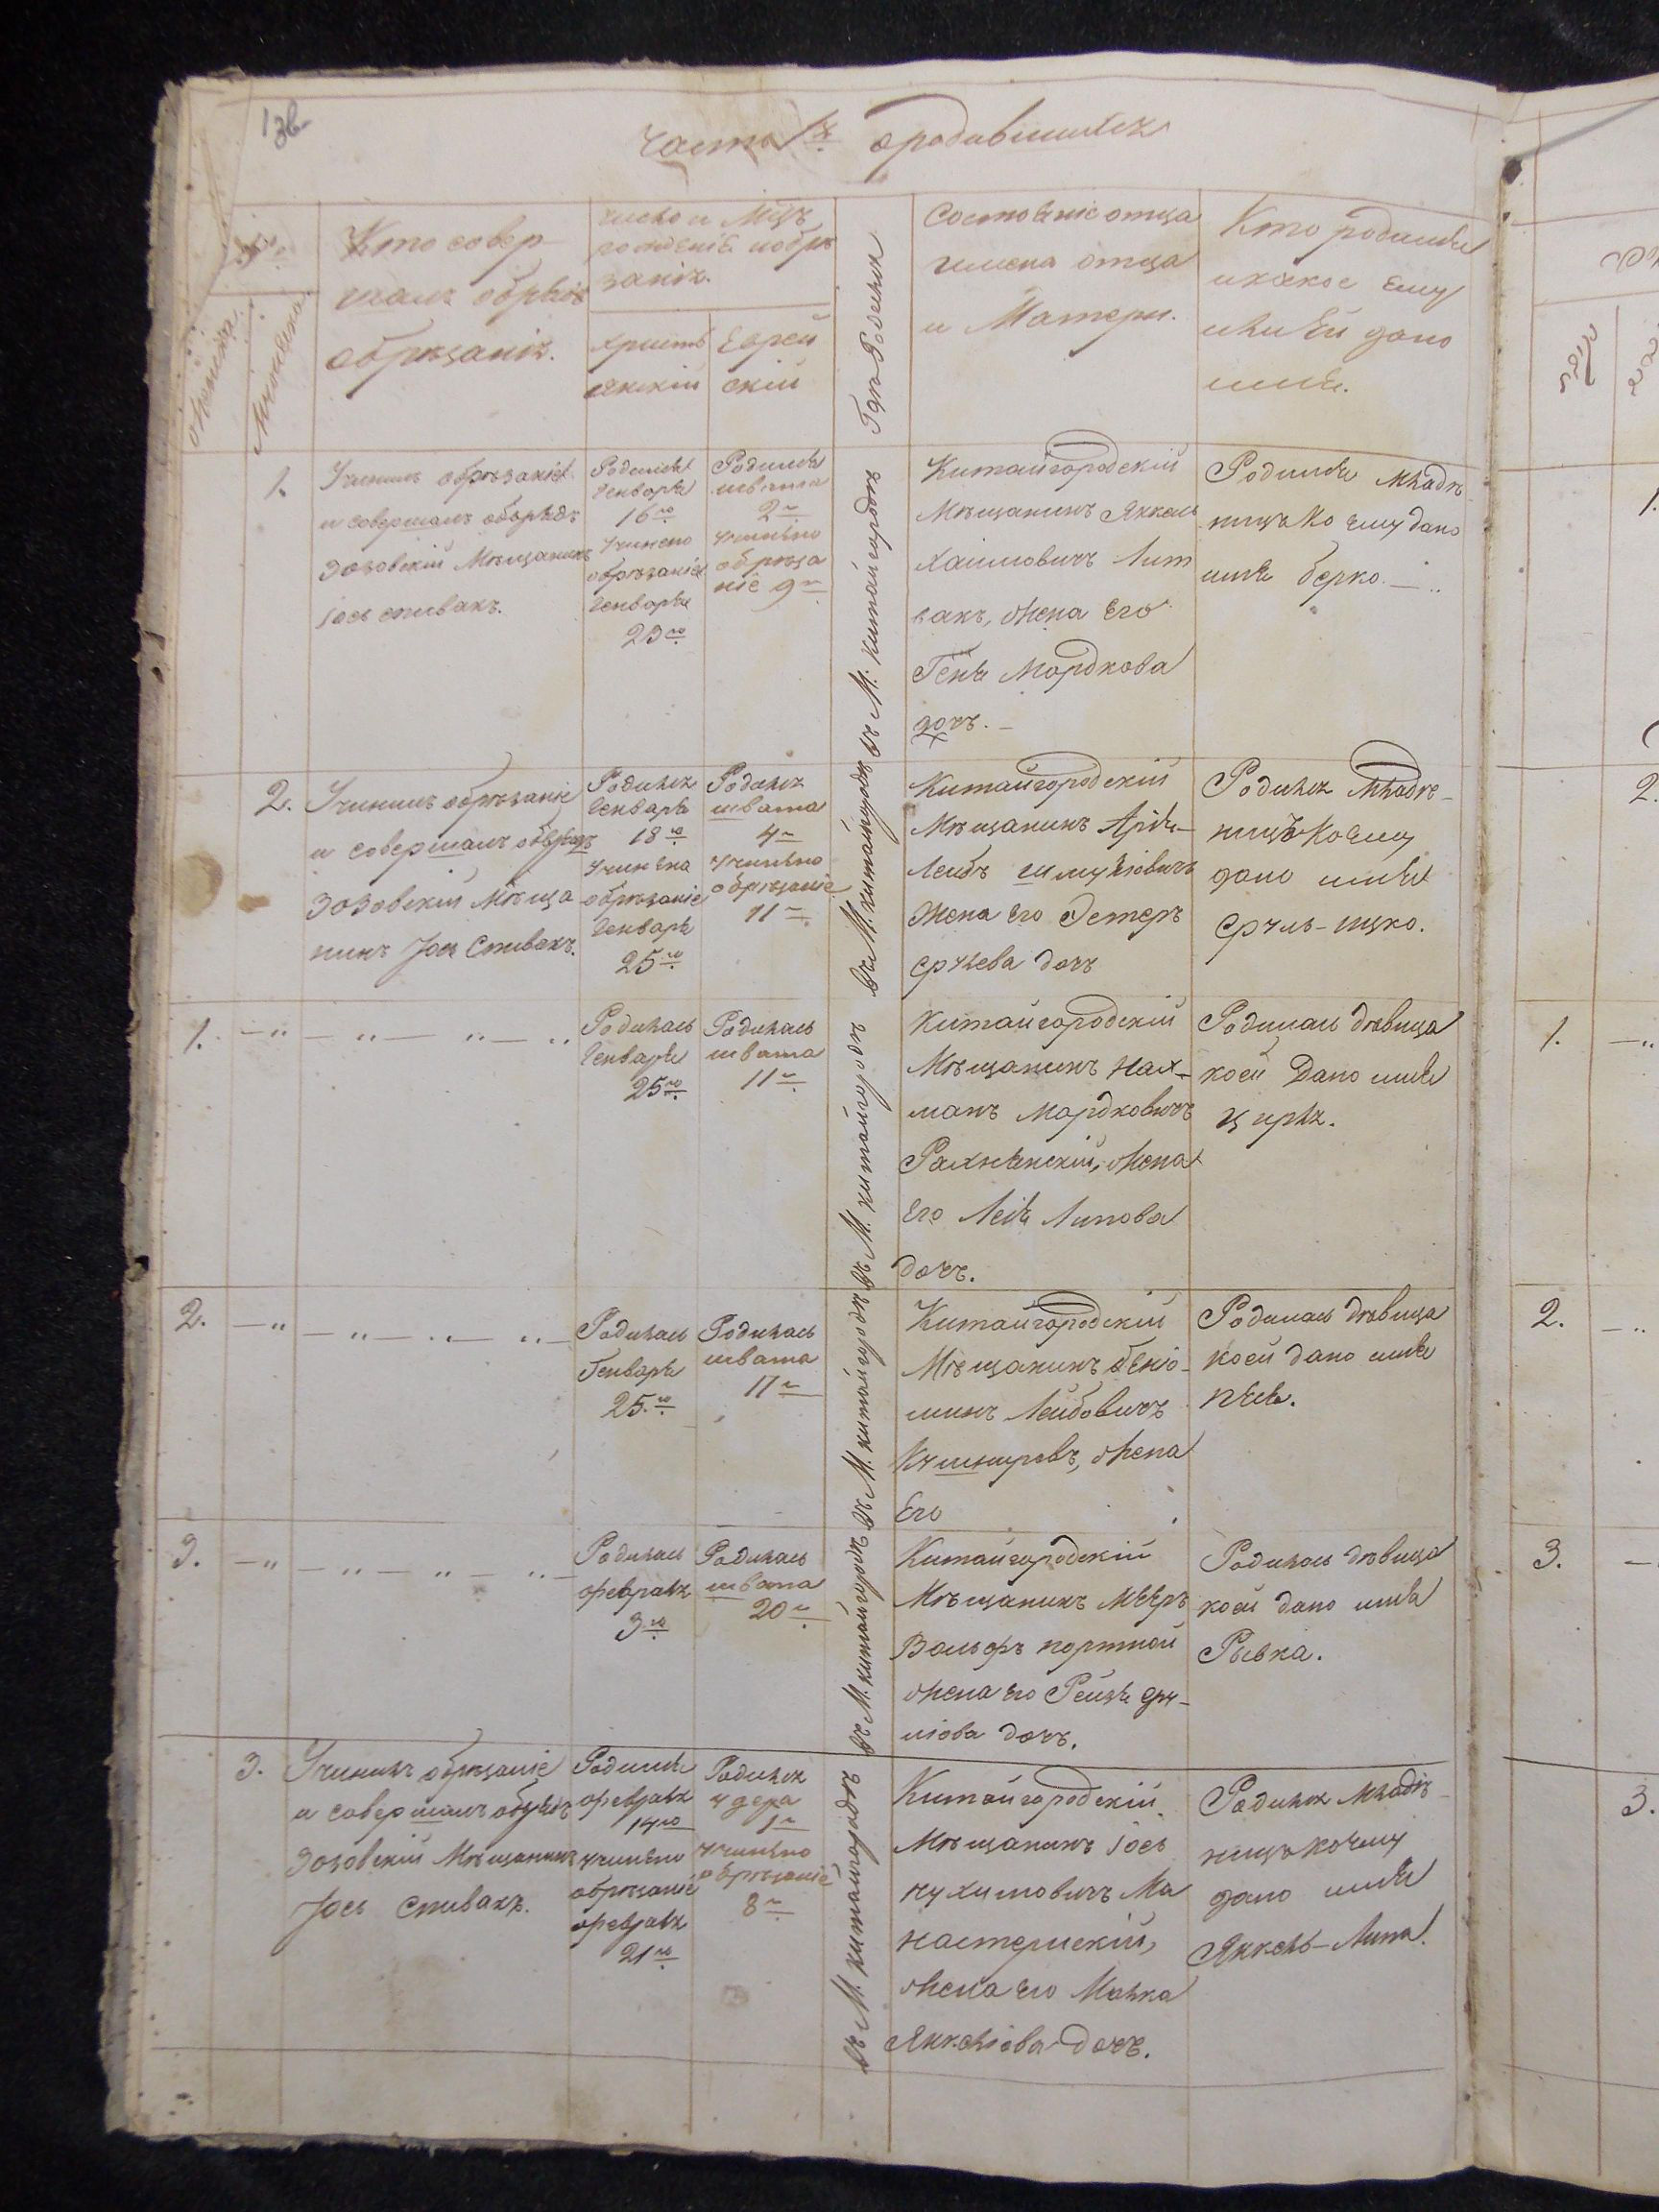 13в
Часть 1я о родившихся
№
Женска
Мужеска
Кто совер-
шалъ обрядъ
обрѣзанія.
число и Мцъ
рожденія и обрѣ
занія.
христі
янскій
Еврей
скій
Гдѣ Родился
Состояніе отца
имена отца
и Матери.
Кто родился
и какое ему
или ей дано
имя.
1.
Учинилъ обрѣзаніе
и совершалъ обрядъ
Зозовскій Мѣщанинъ
Іось спивакъ.
Родился
Генваря
16го
Учинено
обрѣзаніе
Генваря
23го
Родился
швата
2го
Учинено
обрѣза
ніе 9го
въ М. китайгородѣ
Китайгородскій
Мѣщанинъ Янкель
Хаимовичъ Лит
вакъ, жена Его
Геня Мордкова
дочъ.
Родился Младѣ-
ницъ ко ему дано
имя берко.
2.
Учинилъ обрѣзаніе
и совершалъ обрядъ
Зозовскій Мѣща
нинъ Іось Спивакъ.
Родился
Генваря
18го
Учинена
обрѣзаніе
Генваря
25го
Родился
швата
4го
Учинено
обрѣзаніе
11го
въ М. китайгородѣ
Китайгородскій
Мѣщанинъ Арія-
Лейбъ шмулiовичъ
Жена его Эстеръ
срулева дочъ
Родился Младѣ-
ницъ Коему
дано имя
Сруль-ицко.
1. —„ —„— „— „
Родилась
Генваря
25го
Родилась
швата
11го
въ М. китайгородѣ
Китайгородскій
Мѣщанинъ Нах-
манъ Мордковичъ
Рахнянскій, Жена
Его Лея Липова
дочъ.
Родилась дѣвица
коей Дано имя
Цирля.
2. —„ —„— „— „—
Родилась
Генваря
25го
Родилась
швата
11го
въ М. китайгородѣ
Китайгородскій
Мѣщанинъ бенiо-
минъ Лейбовичъ
Кушнировъ, Жена
Его
Родилась дѣвица
коей дано имя
песя.
3. —„ —„— „— „—
Родилась
февраля
3го
Родилась
швата
20го
въ М. китайгородѣ
Китайгородскій
Мѣщанинъ Мееръ
Вольфъ портной
Жена его Рейзя сру-
лiова дочъ.
Родилась дѣвица
коей дано имя
Рывка.
3.
Учинилъ обрѣзаніе
и совершалъ обрядъ
Зозовскій Мѣщанинъ
Іось Спивакъ.
Родился
февраля
14го
учинено
обрѣзаніе
февраля
21го
Родился
удера
1го
учинено
обрѣзаніе
8го
въ М. китайгородѣ
Китайгородскій
Мѣщанинъ Іось
нухимовичъ Ма
настерискій,
Жена его Малка
Янкелiова дочъ.
Родился Младѣ-
ницъ коему
дано имя
Янкель-Липа.
1.
2.
1. —„
2. —„
3. —
3.